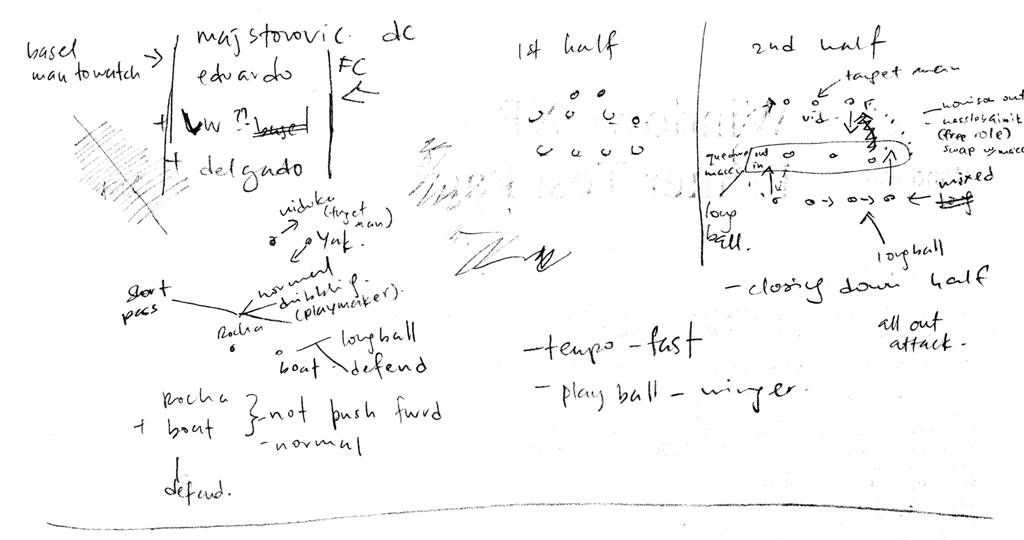 basel
man to watch
majstorovic. dc
eduardo
FC
+
w ??
+ delgado
viduka
(target
man)
Yak.
short
pass
normal
dribbling.
(playmaker).
Rocha
longball
boat
defend
Rocha
+ boat
- not push fwrd
- normal
defend.
1st half
- tempo - fast
- play ball - winger.
2nd half
target man
vid.
(free role)
out
in
long
ball.
mixed
longball
- closing down half
all out
attack.